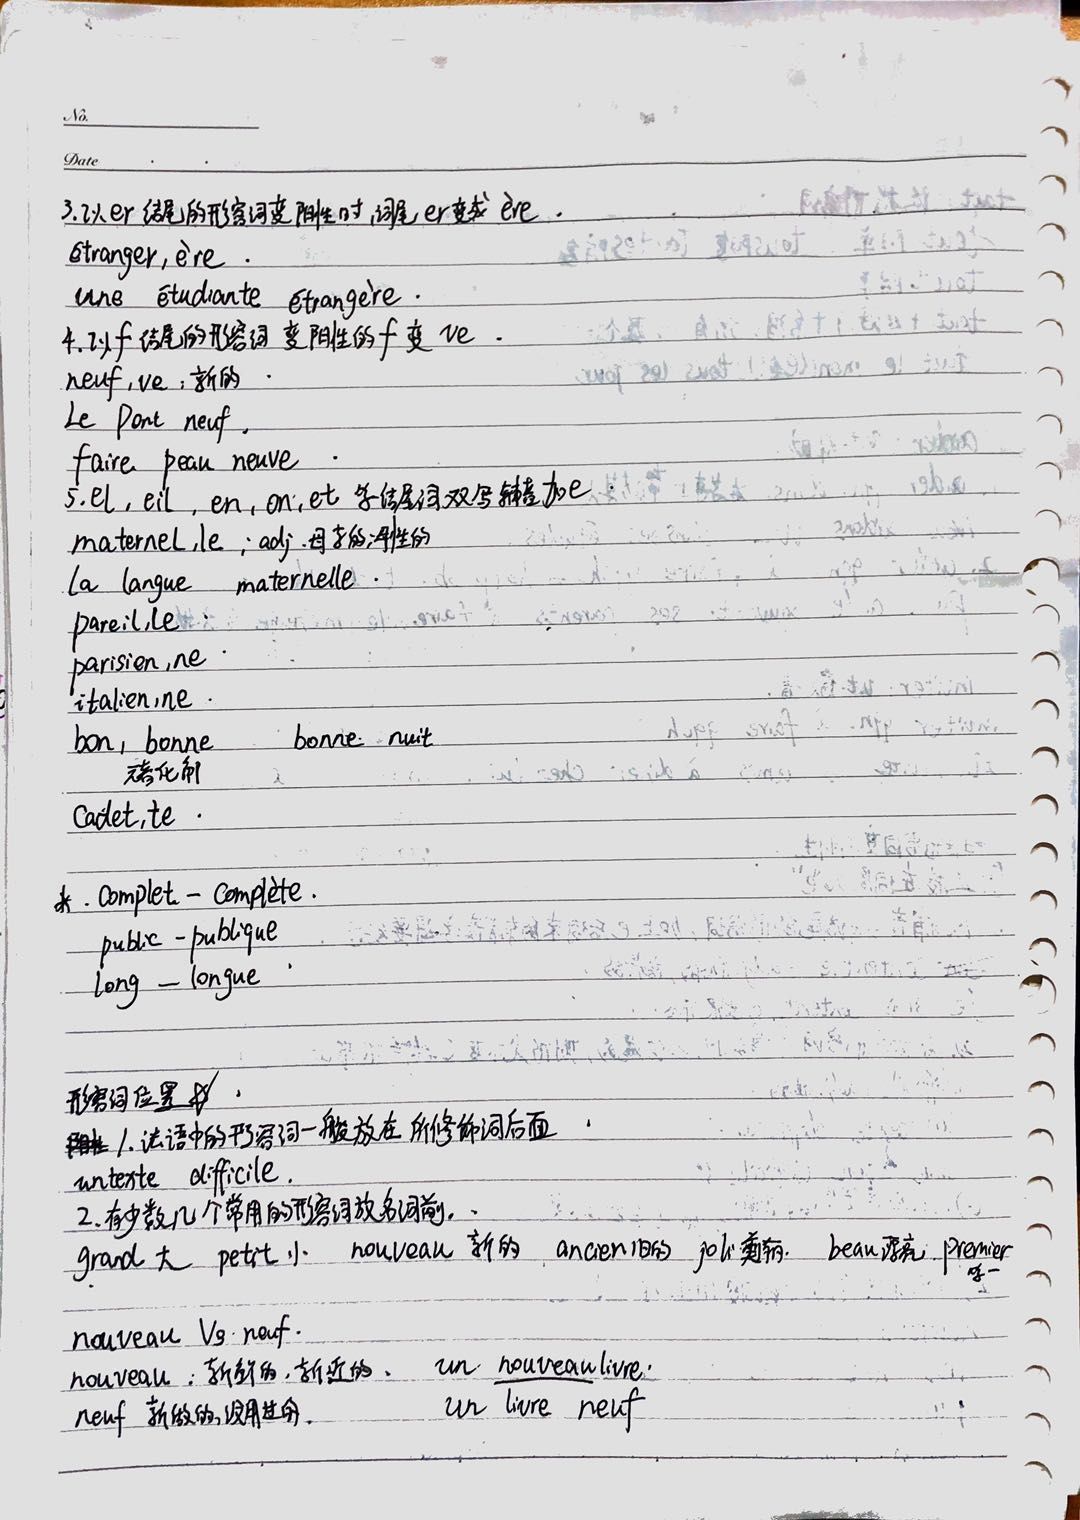 No.
Date
3.以er结尾的形容词变阴性时,词尾er变成ère.
étranger,ère.
une étudiante étrangère.
4.以f结尾的形容词变阴性的f变ve.
neuf,ve:新的.
Le Pont neuf.
faire peau neuve.
5.el,eil,en,on,et等结尾词双写辅音加e.
maternel,le;adj.母亲的,母性的
la langue maternelle.
pareil,le.
parisien,ne.
italien,ne.
bon,bonne bonne nuit
Cadet,te.
*.complet-complète.
public-publique
long-longue
形容词位置
1.法语中的形容词一般放在所修饰词后面.
un texte difficile.
2.有少数几个常用的形容词放名词前.
grand大 petit小 nouveau新的 ancien旧的 joli美丽 beau漂亮 premier
第一
nouveau Vs neuf.
nouveau:新鲜的,新近的. un nouveau livre.
neuf 新做的,没用过的. un livre neuf